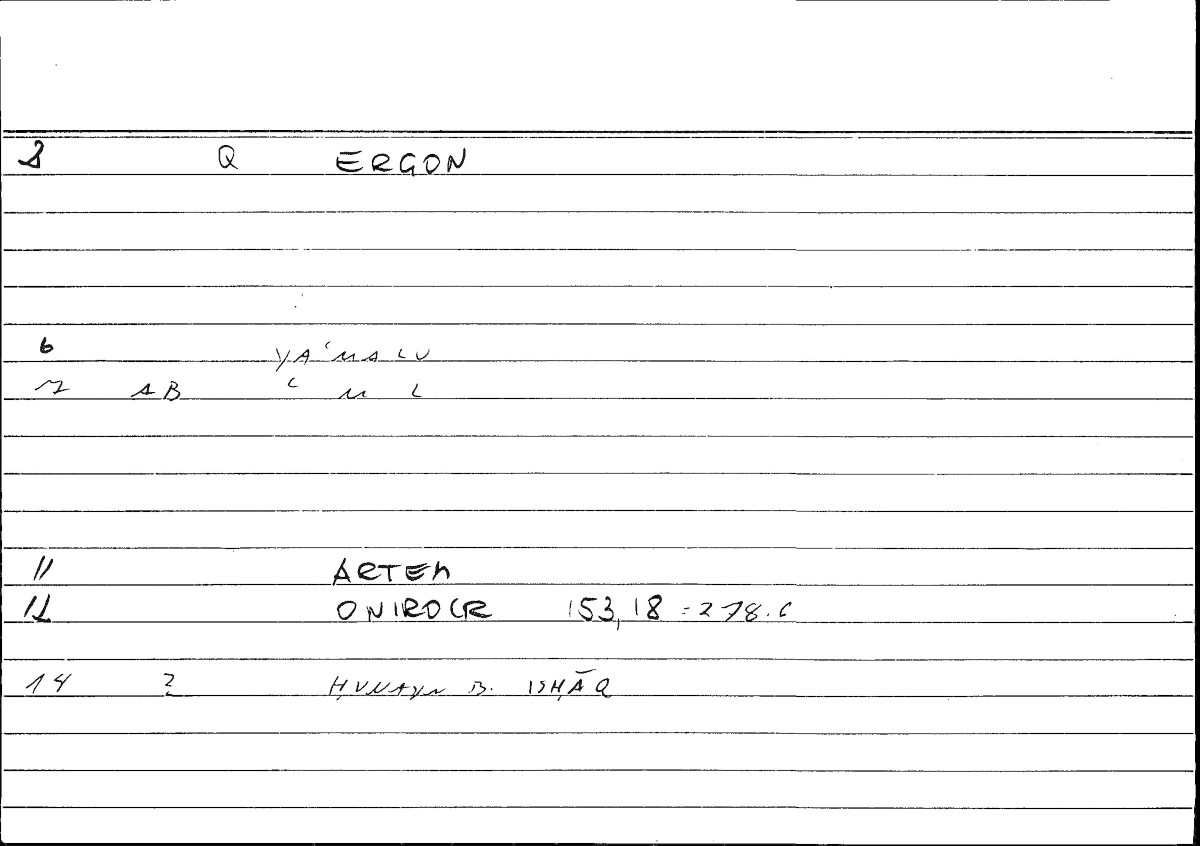 2 Q ERGON
6 YAʿMALU
7 AB ʿ M L
11 ARTEM
12 ONIROCR 153,18 = 278.6
14 ? ḤUNAYN B. ISḤĀQ